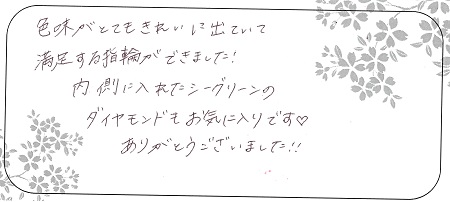 色味がとてもきれいに出ていて
満足する指輪ができました!
内側に入れたシーグリーンの
ダイヤモンドもお気に入りです♡
ありがとうございました!!